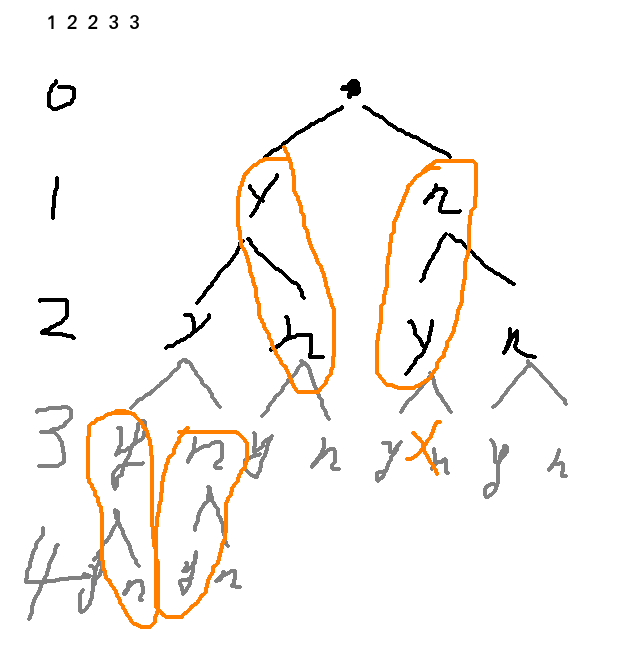 1 2 2 3 3
0
1 y n
2 y n y n
3 y n y n y x n y n
4 y n y n